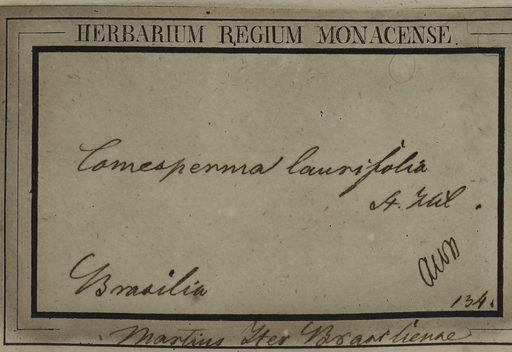 HERBARIUM REGIUM MONACENSE.
Comesperma laurifolia
St. Hil.
Brasilia
134.
Martius Iter Brasiliense